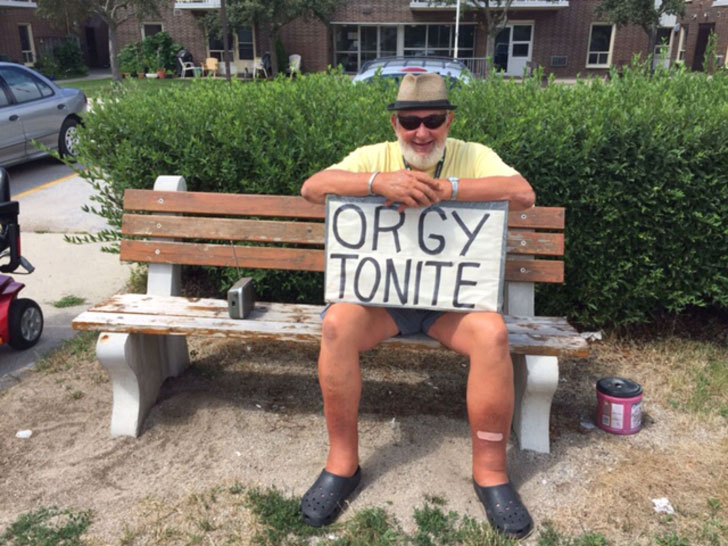 ORGY
TONITE